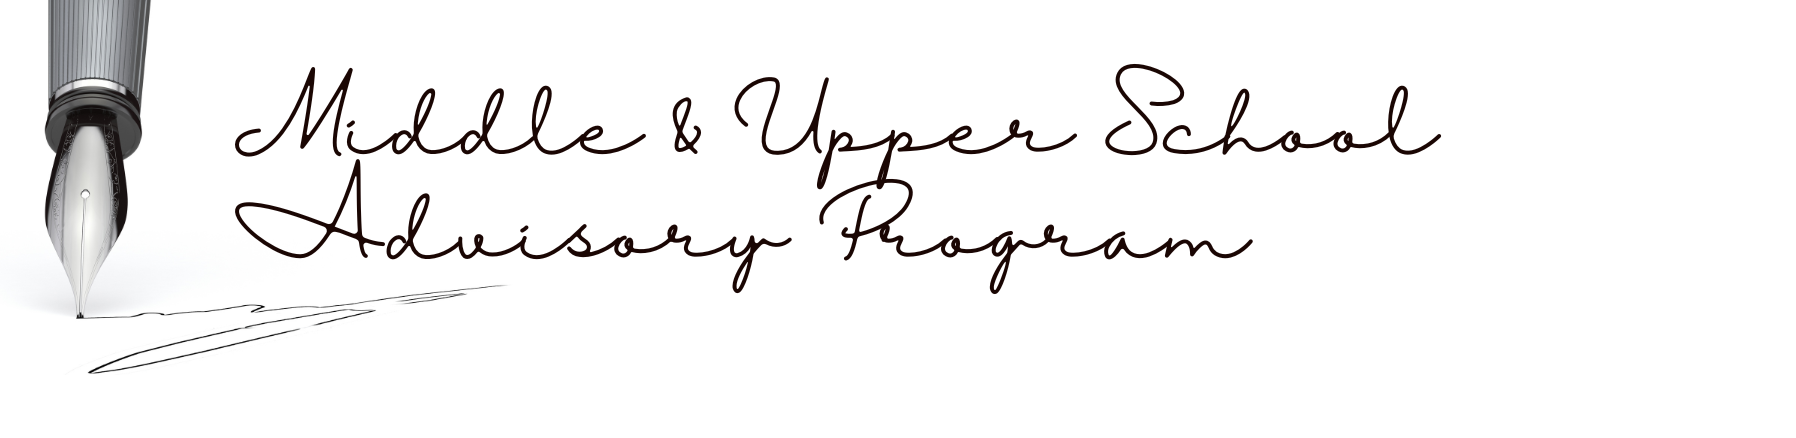 Middle & Upper School
Advisory Program